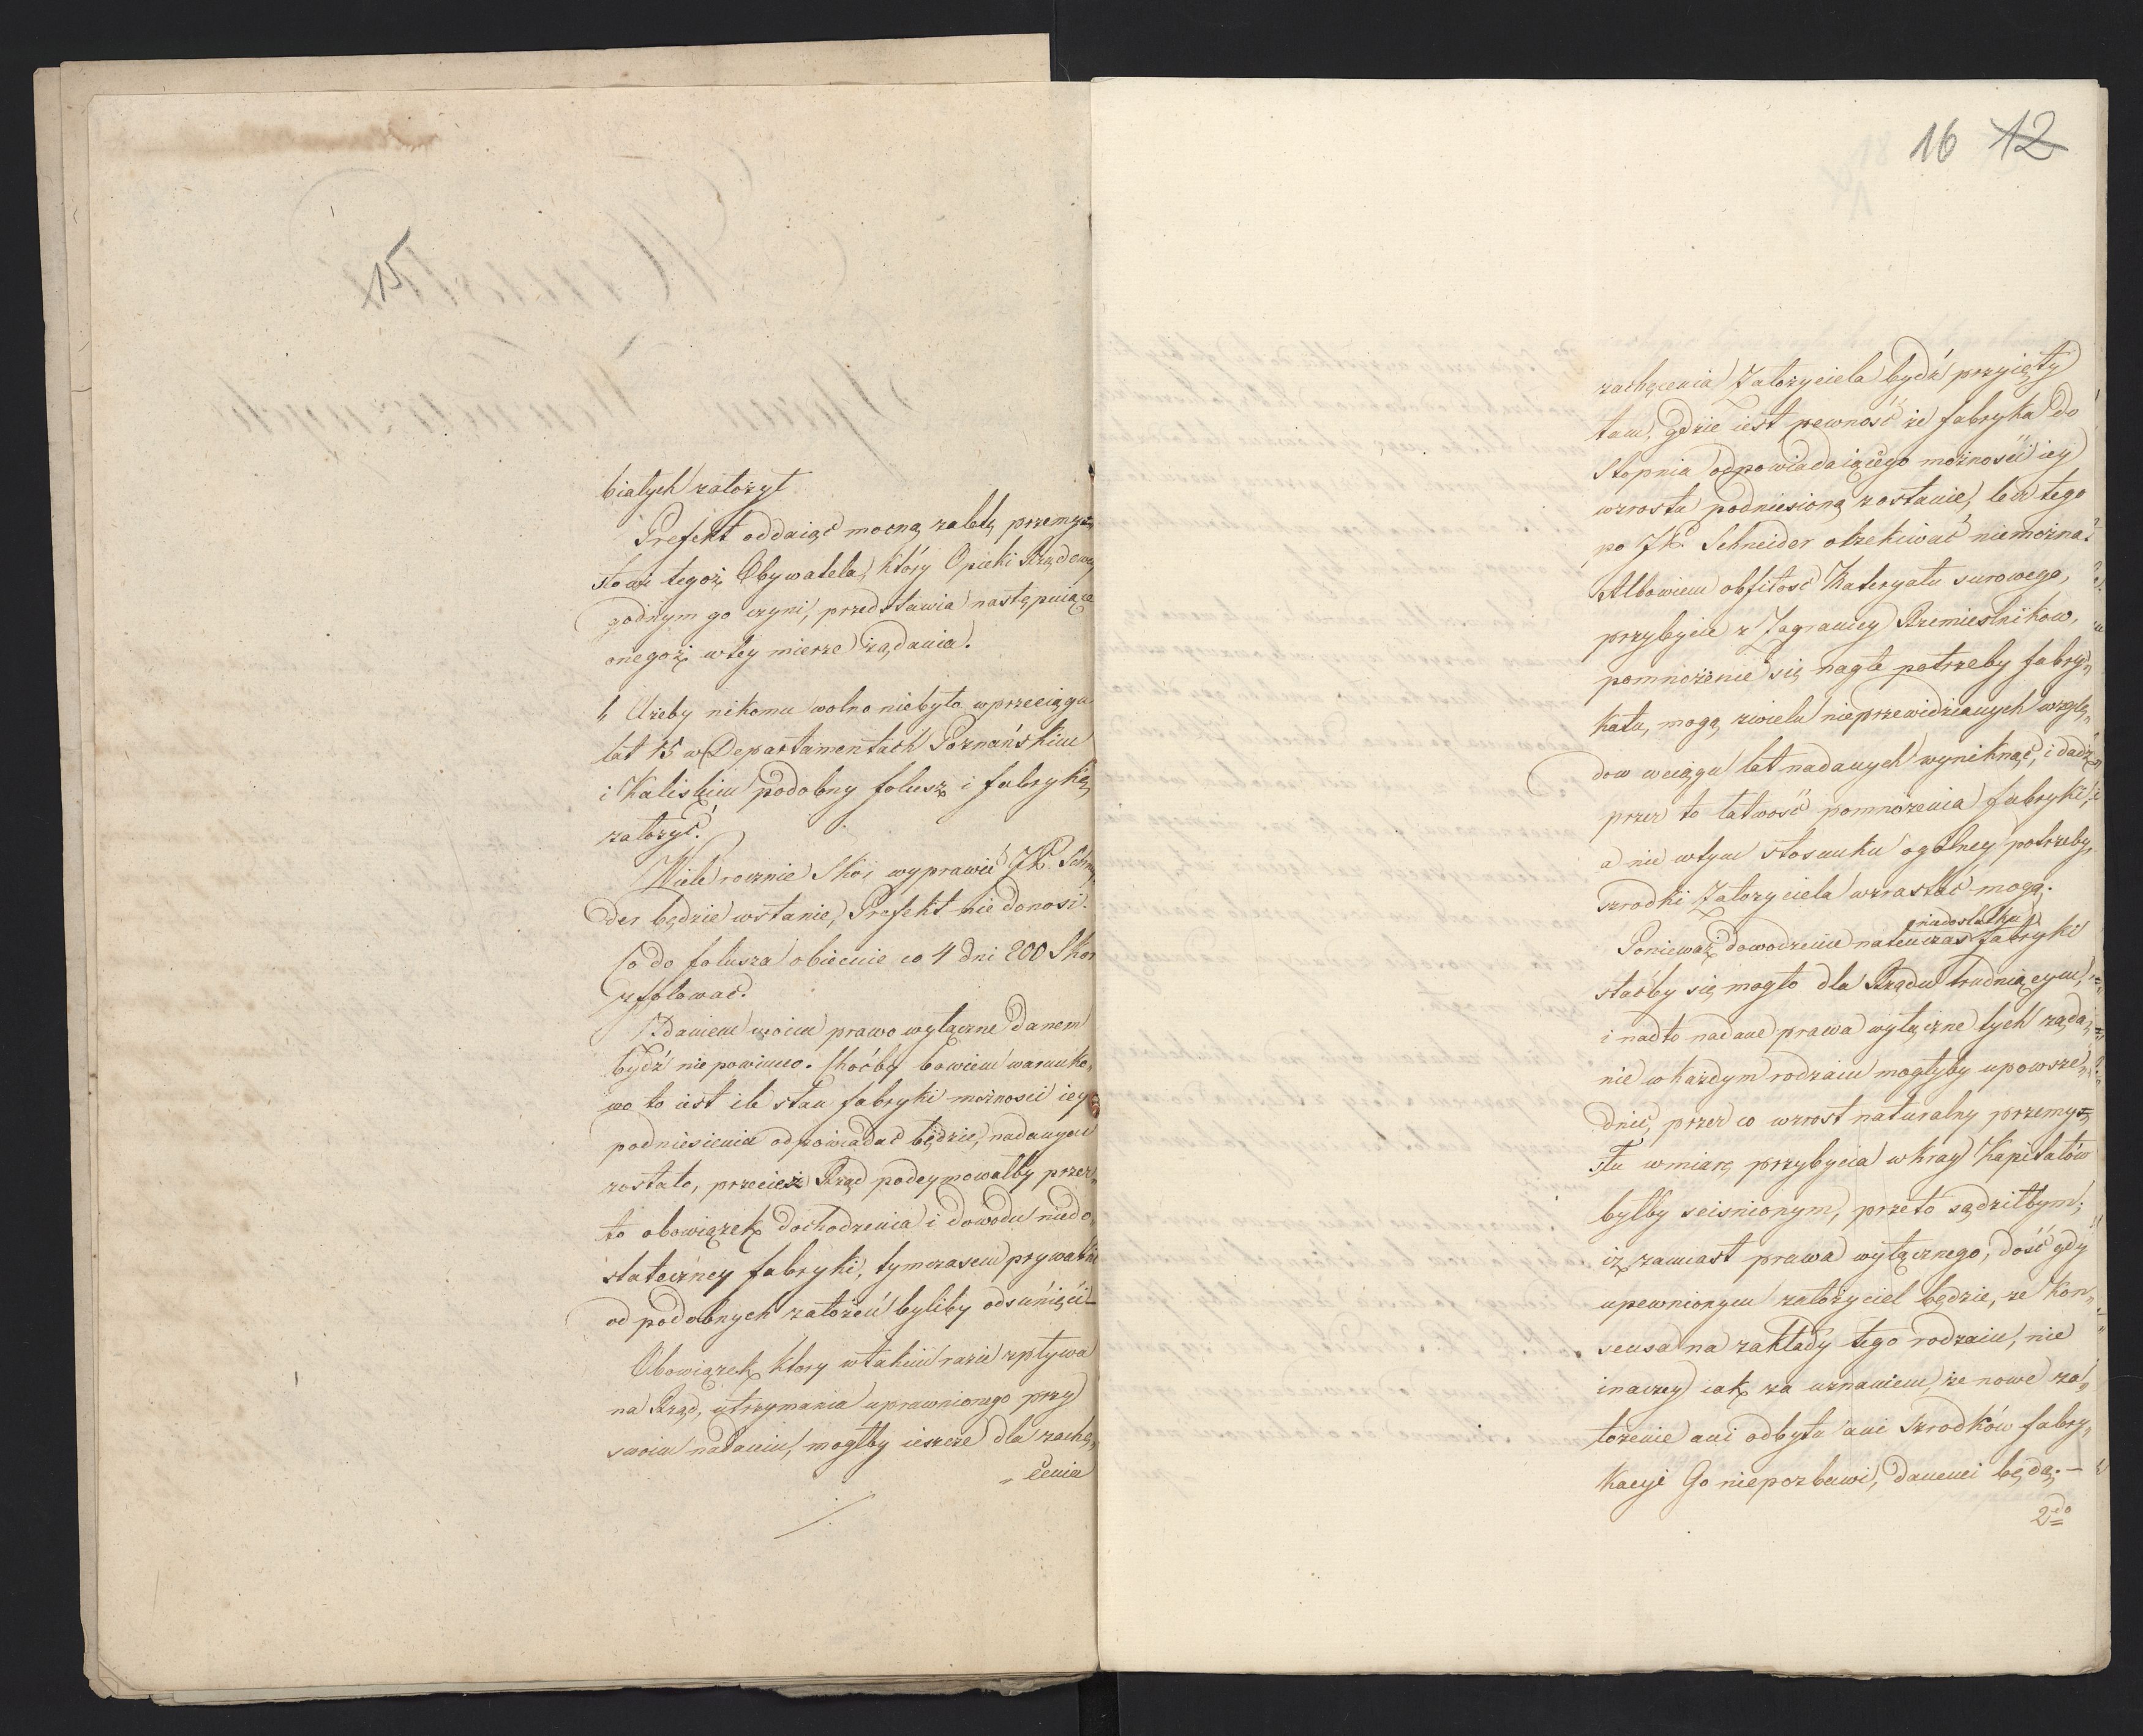 15
białych założył
Prefekt oddaiąc mocną zaletę przemy=
słowi tegoż Obywatela, który Opieki Rządowey
godnym go czyni, przedstawia następuiące
onegoż w tey mierze żądania.
" Ażeby nikomu wolno niebyło w przeciągu
lat 15 w Departamentach Poznańskim
i Kaliskim podobny folusz i fabrykę
założyć.
Wiele rocznie Skór wyprawić JP. Schnei
der będzie wstanie, Prefekt nie donosi.
Co do folusza obiecuie co 4 dni 200 Skor
zfolować.
Zdaniem moim prawo wyłączne danem
bydź nie powinno. Choćby bowiem warunko„
wo to iest ile stan fabryki możności iey
podniesienia odpowiadać będzie, nadanym
zostało, przecież Rząd podeymowałby przez„
to obowiązek dochodzenia i dowodu niedo„
stateczney fabryki, tymczasem prywatni
od podobnych założeń byliby odsunięci –
Obowiązek który w takim razie spływa
na Rząd, utrzymania uprawnionego przy
swoim nadaniu, mogłby ieszcze dla zachę„
„cenia
16 12
zachęcenia Założyciela bydź przyięty
tam, gdzie iest pewność że fabryka do
Stopnia odpowiadaiącego możności iey
wzrostu podniesioną zostanie, lecz tego
po JP. Schneider oczekiwać niemożna.
Albowiem obfitość Materyału surowego,
przybycie z Zagranicy Rzemieslnikow,
pomnożenie się nagłe potrzeby fabry„
katu, mogą zwielu nieprzewidzianych wzglę„
dow w ciągu lat nadanych wyniknąć, i dadzą
przez to łatwość pomnożenia fabryki,
a nie w tym stosunku ogolney potrzeby,
szrodki Założyciela wzrastać mogą.
niedostatku
Ponieważ dowodzenie natenczas fabryki
staćby się mogło dla Rządu trudniącym,
i nadto nadane prawa wyłączne tych żąda„
nie w każdym rodzaiu mogłyby upowsze„
dnić, przez co wzrost naturalny przemy=
słu w miarę przybycia w kray Kapitałów
byłby scisnionym, przeto sądziłbym;
iż zamiast prawa wyłącznego, dość gdy
upewnionym założyciel będzie, że Kon„
sensa na zakłady tego rodzaiu, nie
inaczey iak za uznaniem, że nowe za„
łożenie ani odbytu ani Szrodków fabry„
kacyi Go niepozbawi, danemi będą. –
2do